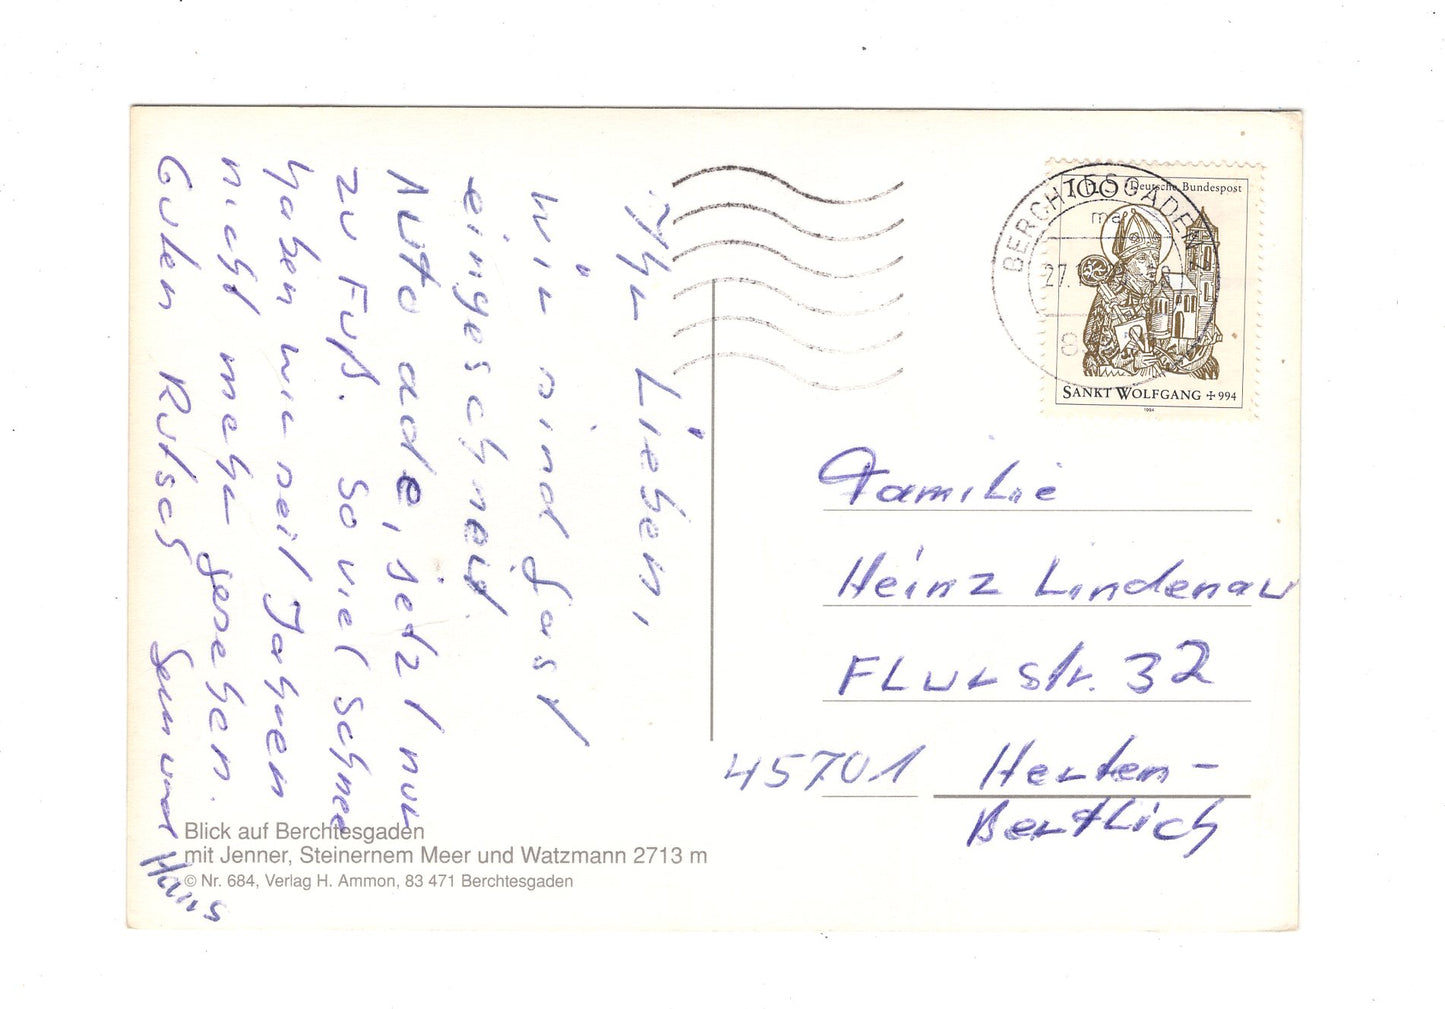 Ihr Lieben,
wir sind fast
eingeschneit.
Auto ade, jetzt nur
zu Fuß. So viel Schnee
haben wir seit Jahren
nicht mehr gesehen.
Guten Rutsch
und
Hans
100 Deutsche Bundespost
SANKT WOLFGANG ✢994
1994
BERCHTESGADEN 1
27.1
8
Familie
Heinz Lindenau
Flurstr. 32
45701 Herten-
Bertlich
Blick auf Berchtesgaden
mit Jenner, Steinernem Meer und Watzmann 2713 m
© Nr. 684, Verlag H. Ammon, 83 471 Berchtesgaden